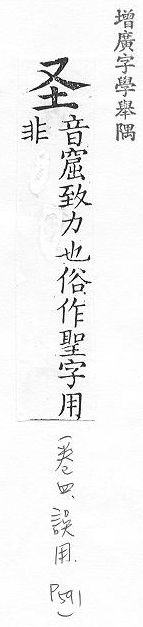 增廣字學舉隅
圣
音窟致力也俗作聖字用
非
(卷四、誤用、P591)